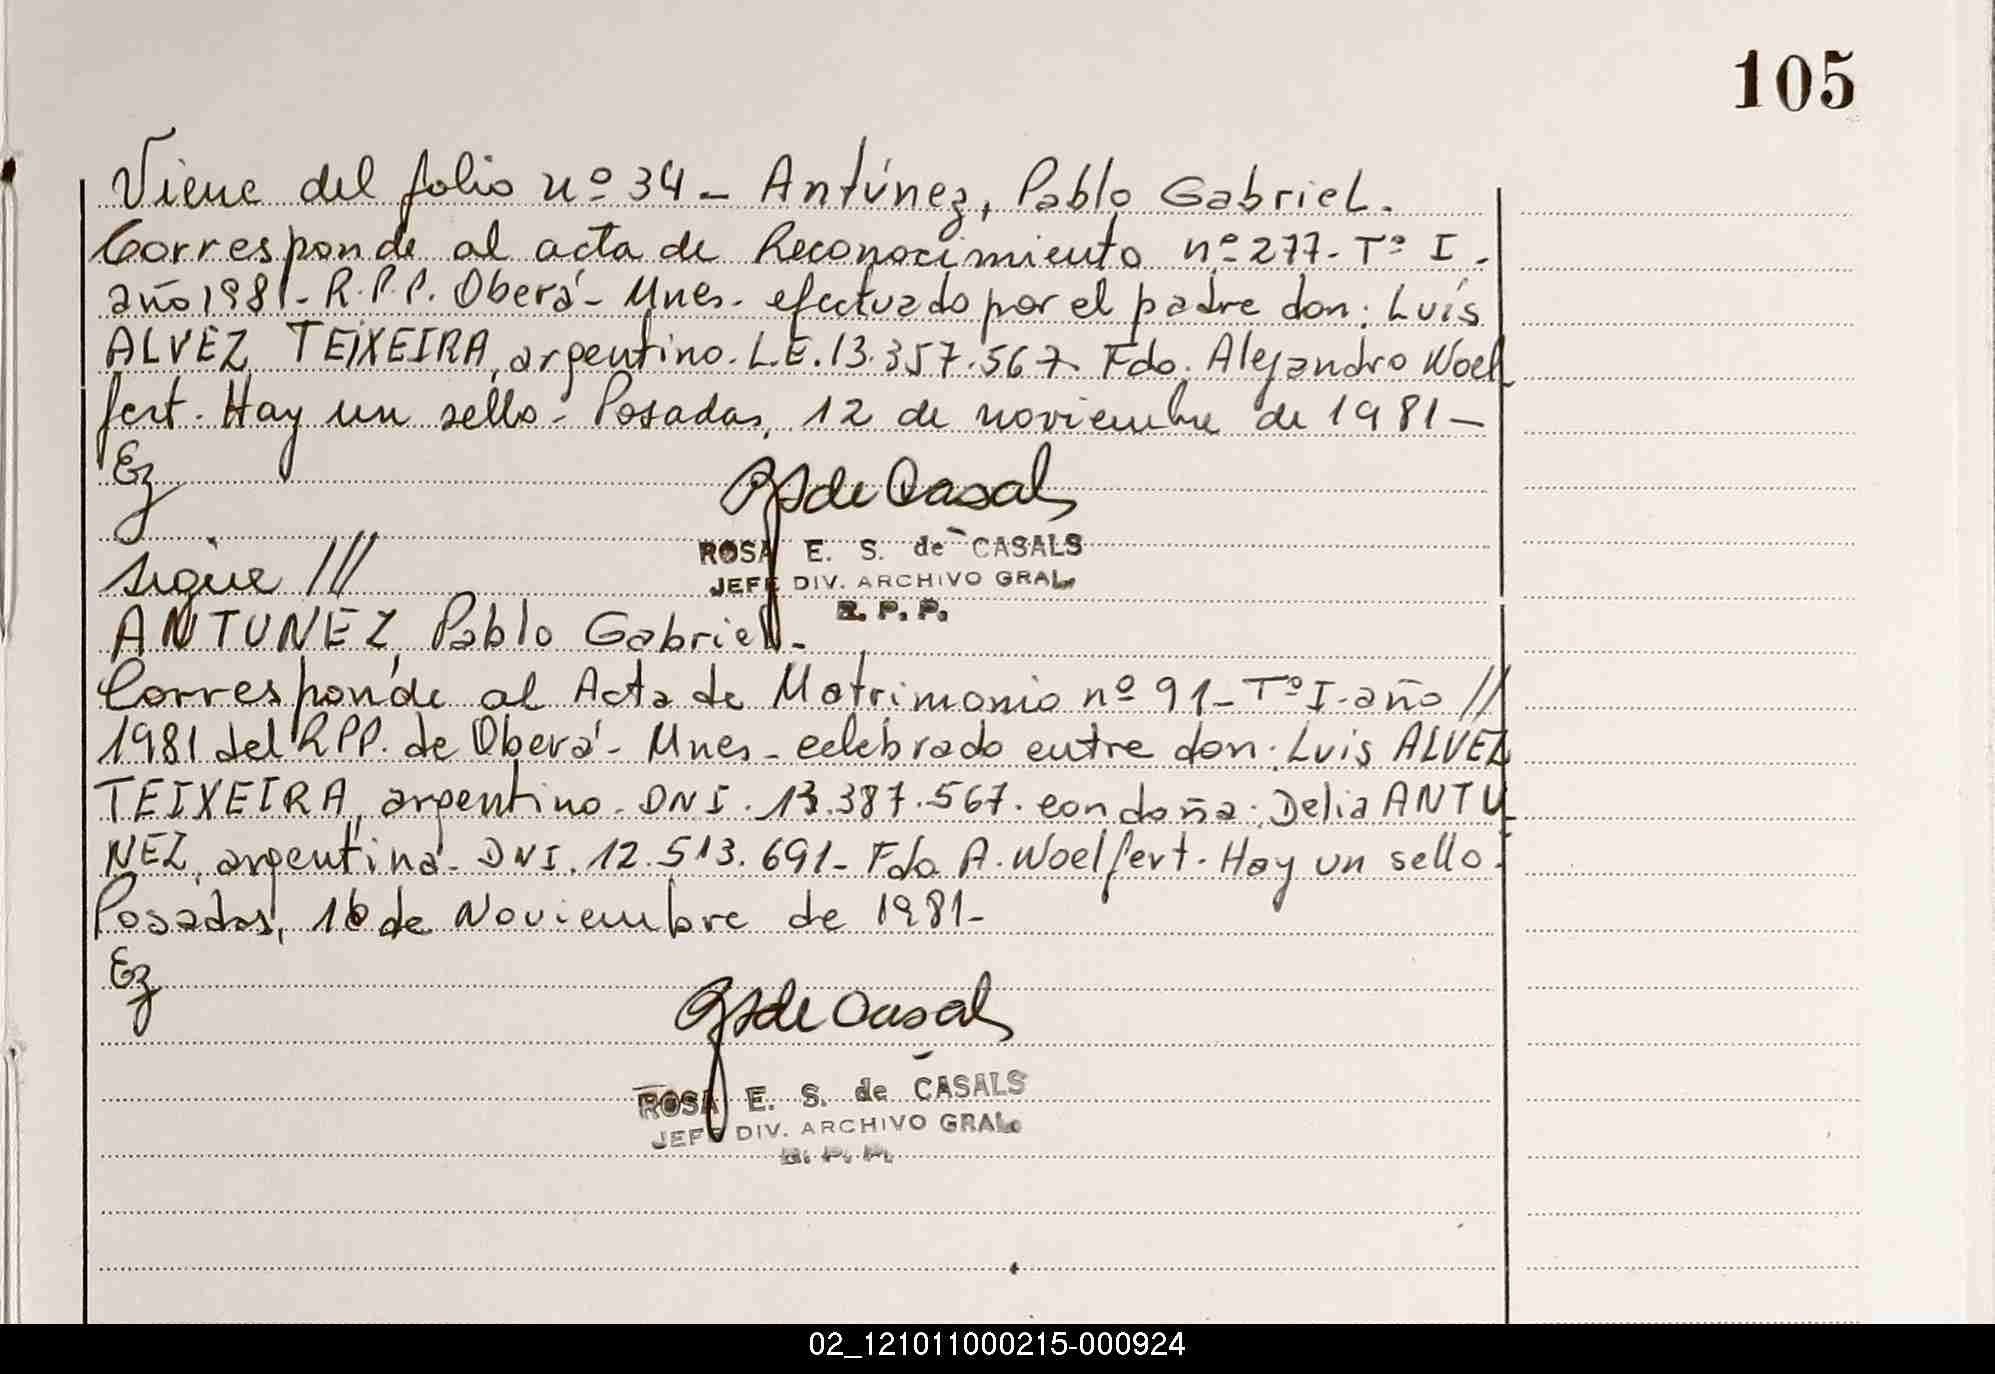 105
Viene del folio nº 34 - Antúnez, Pablo Gabriel.
Corresponde al acta de Reconocimiento nº 277 - Tº I -
año 1981 - R.P.P. Oberá - Mnes - efectuado por el padre don: Luis
ALVEZ TEIXEIRA, argentino. L.E. 13.357.567. Fdo. Alejandro Woel
fert. Hay un sello - Posadas, 12 de noviembre de 1981 -
Ez
ROSA E. S. de CASALS
JEFE DIV. ARCHIVO GRAL.
R. P. P.
sigue ///
ANTUNEZ, Pablo Gabriel -
Corresponde al Acta de Matrimonio nº 91 - Tº I - año //
1981 del RPP. de Oberá - Mnes - celebrado entre don: Luis ALVEZ
TEIXEIRA, argentino - DNI. 13.387.567. con doña: Delia ANTU
NEZ, argentina - DNI. 12.513.691 - Fdo A. Woelfert. Hay un sello.
Posadas, 16 de Noviembre de 1981 -
Ez
ROSA E. S. de CASALS
JEFE DIV. ARCHIVO GRAL.
R. P. P.
02_121011000215-000924